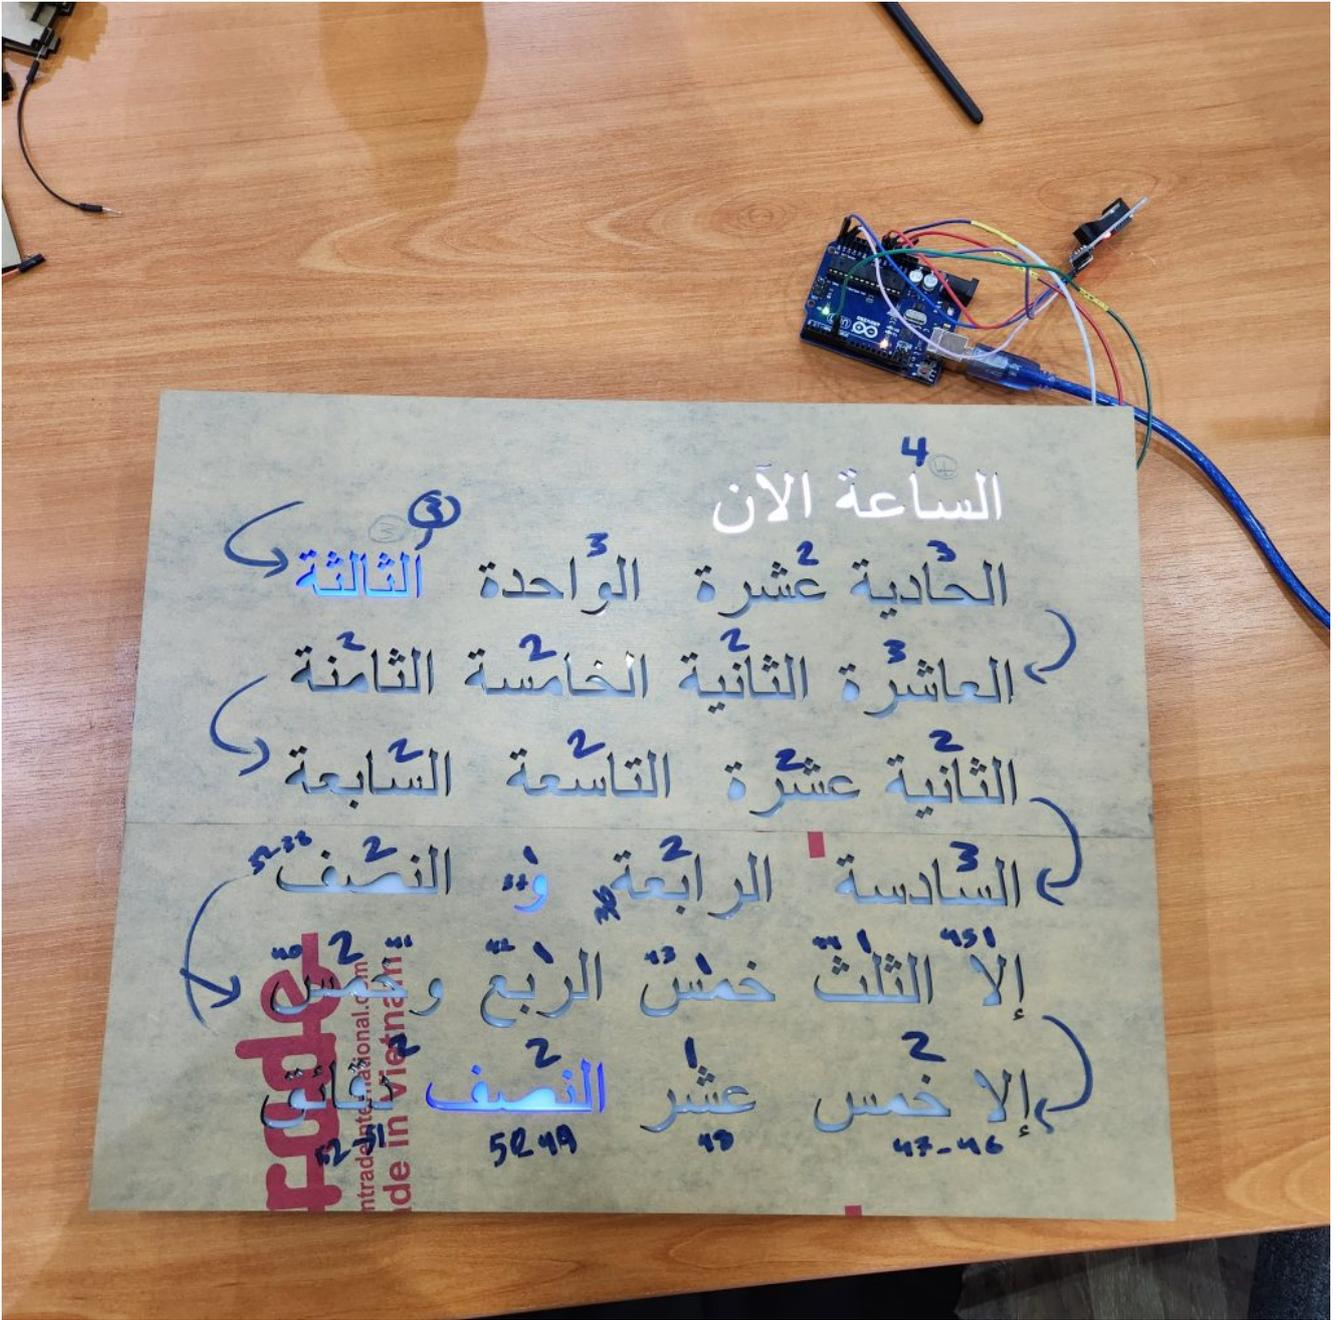 4
الساعة الآن
3
3 2 3
الحادية عشرة الواحدة الثالثة
3 2 2 2
العاشرة الثانية الخامسة الثامنة
2 2 2 2
الثانية عشرة التاسعة السابعة
3 2 1 2
السادسة الرابعة و النصف
451 1 1 1 2
إلا الثلث خمس الربع وخمس
2 1 2 2
إلا خمس عشر النصف دقائق
47-46 48 52-49
ntradeinternational.com
de in Vietnam